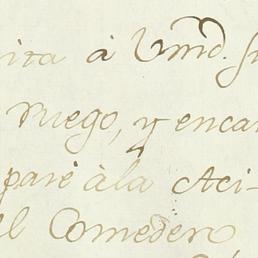 ita á Vmd. su
ruego, y encar
pare àla Aci-
el Comedero